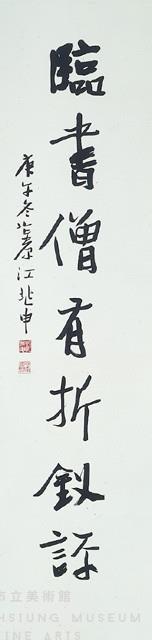 臨書僧有折釵評
庚午冬 江兆申
市立美術館
HSIUNG MUSEUM
FINE ARTS